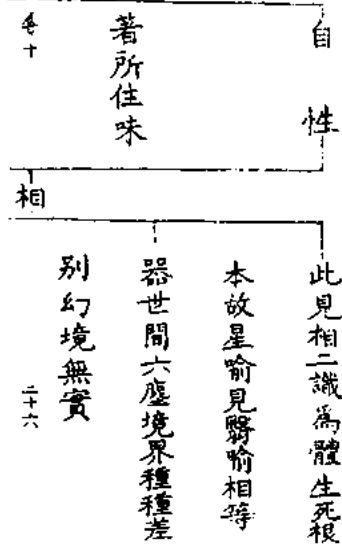 自性
著所住味
十
相
此見相二識爲體生死根
本故星喻見翳喻相等
器世間六塵境界種種差
別幻境無實
二十六